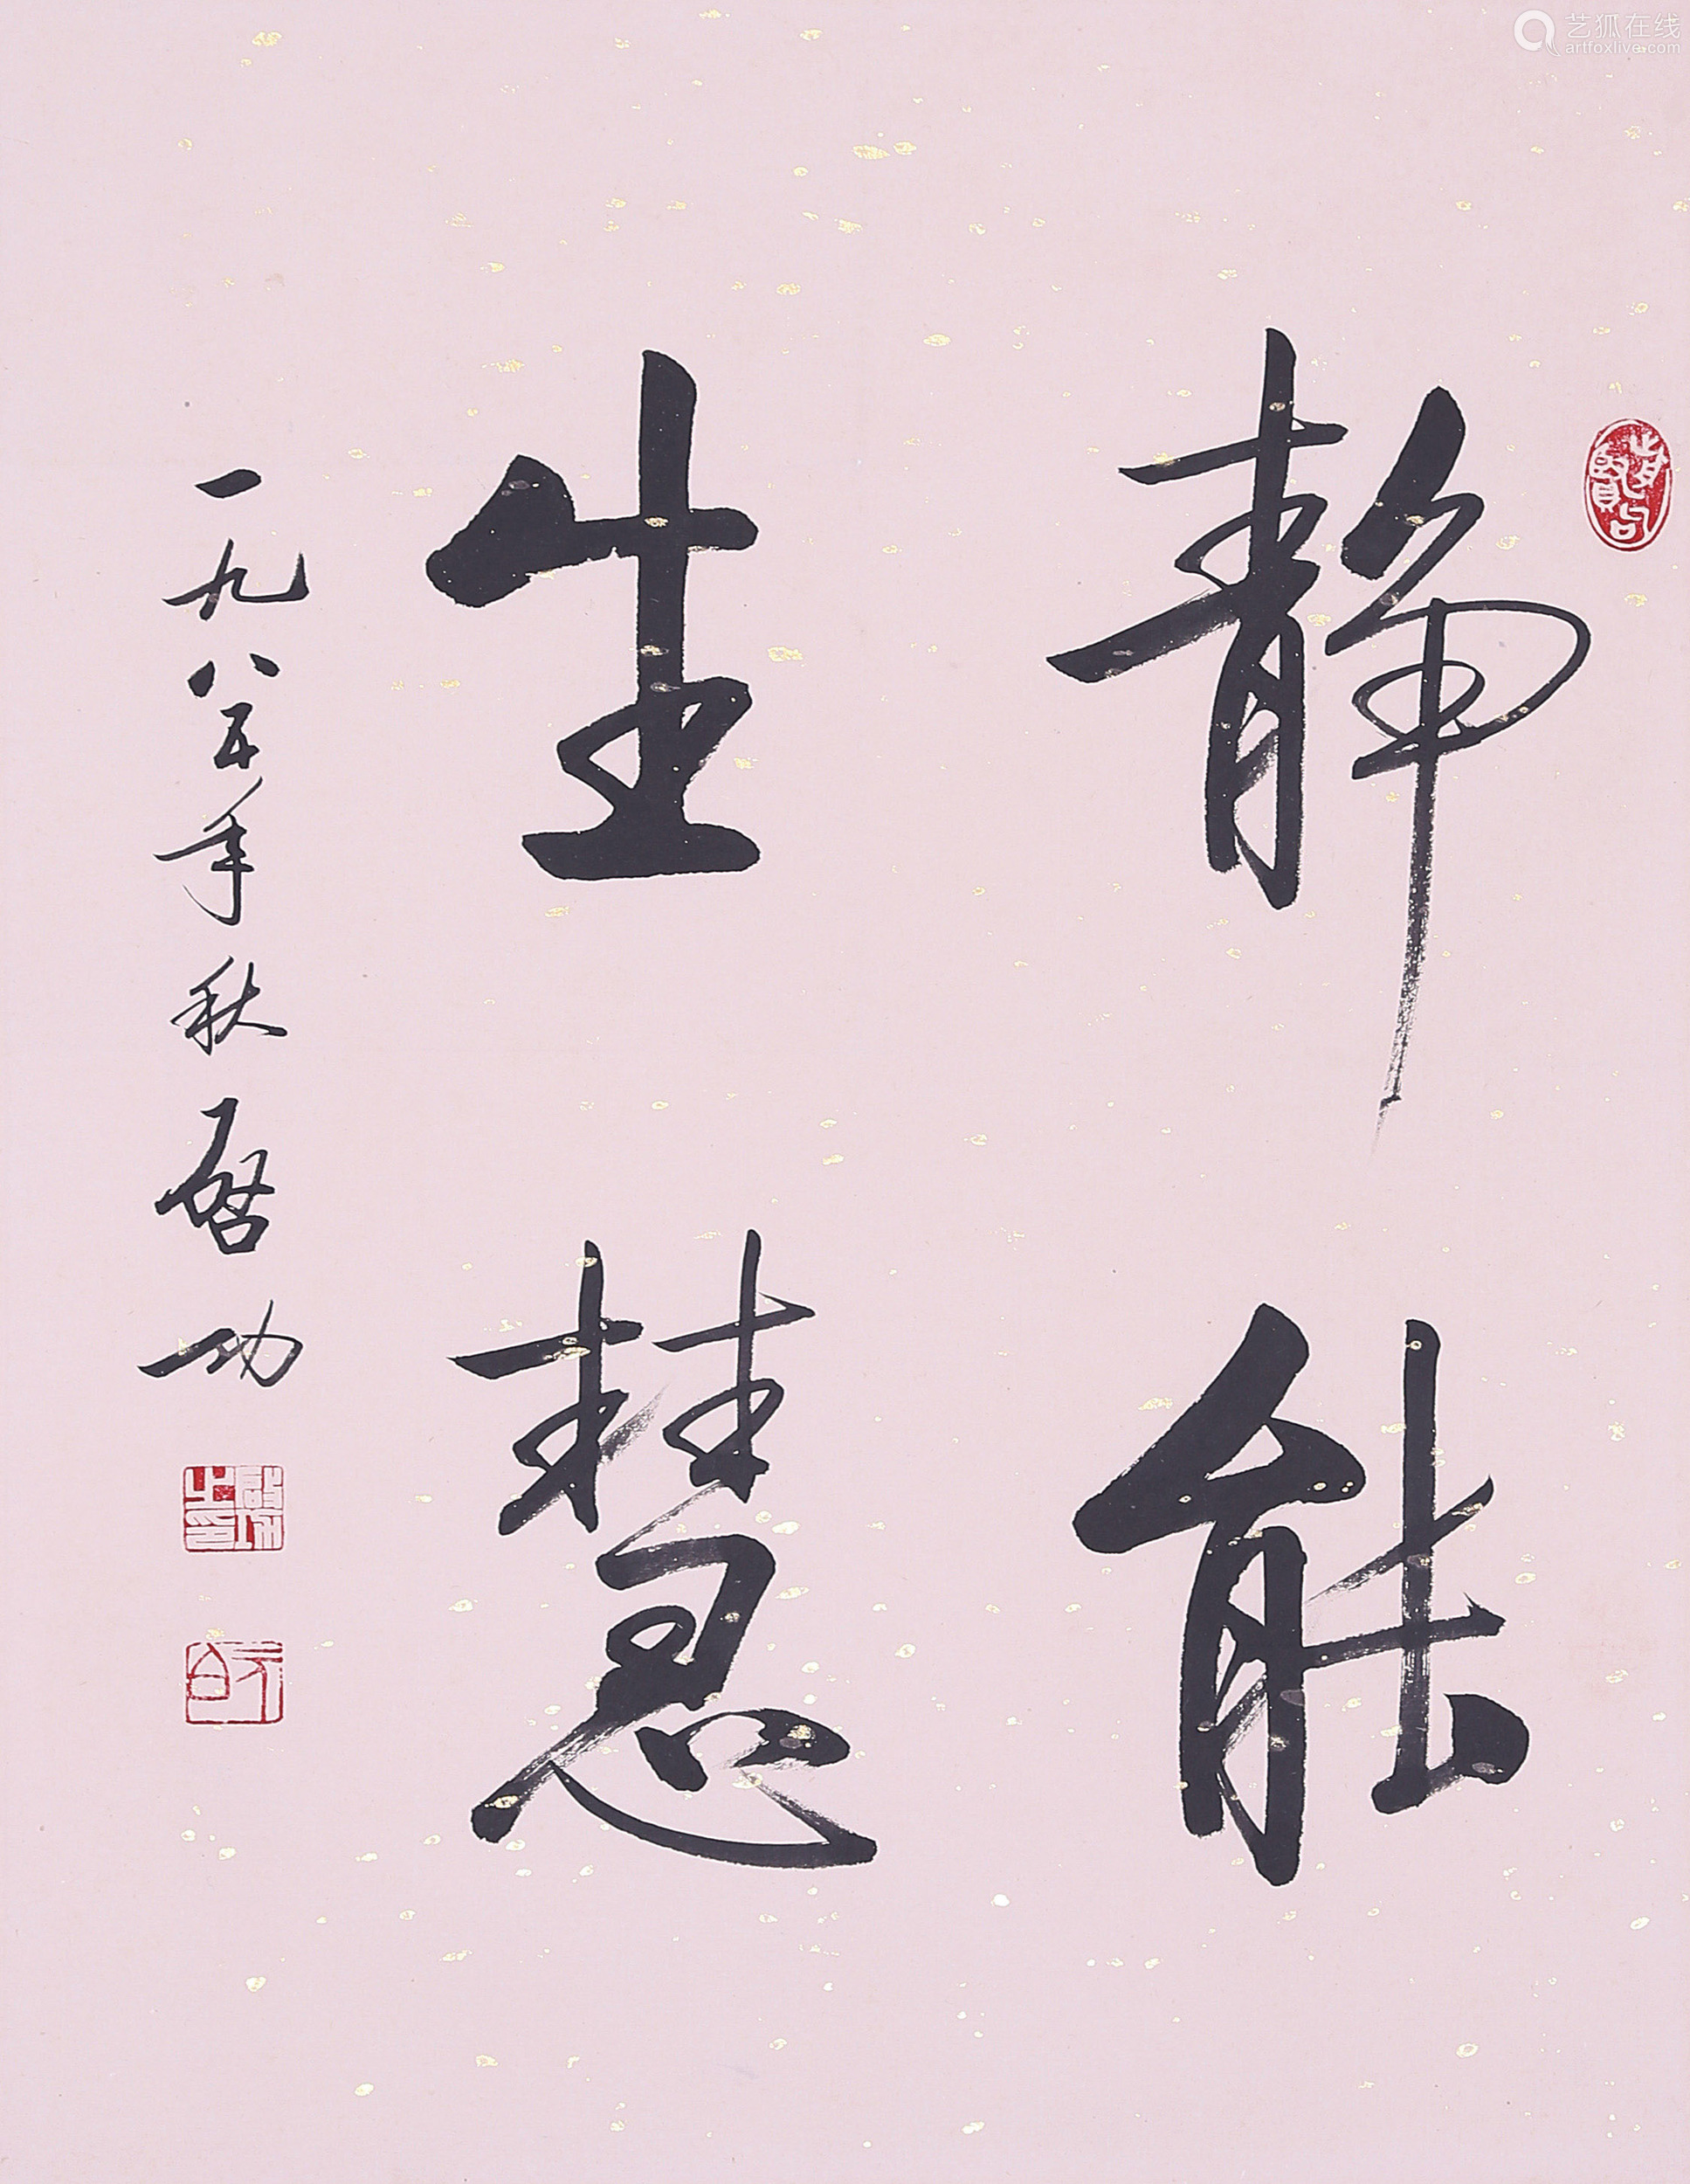 静能
生慧
一九八五年秋启功
启功之印
元白
艺狐在线
artfoxlive.com